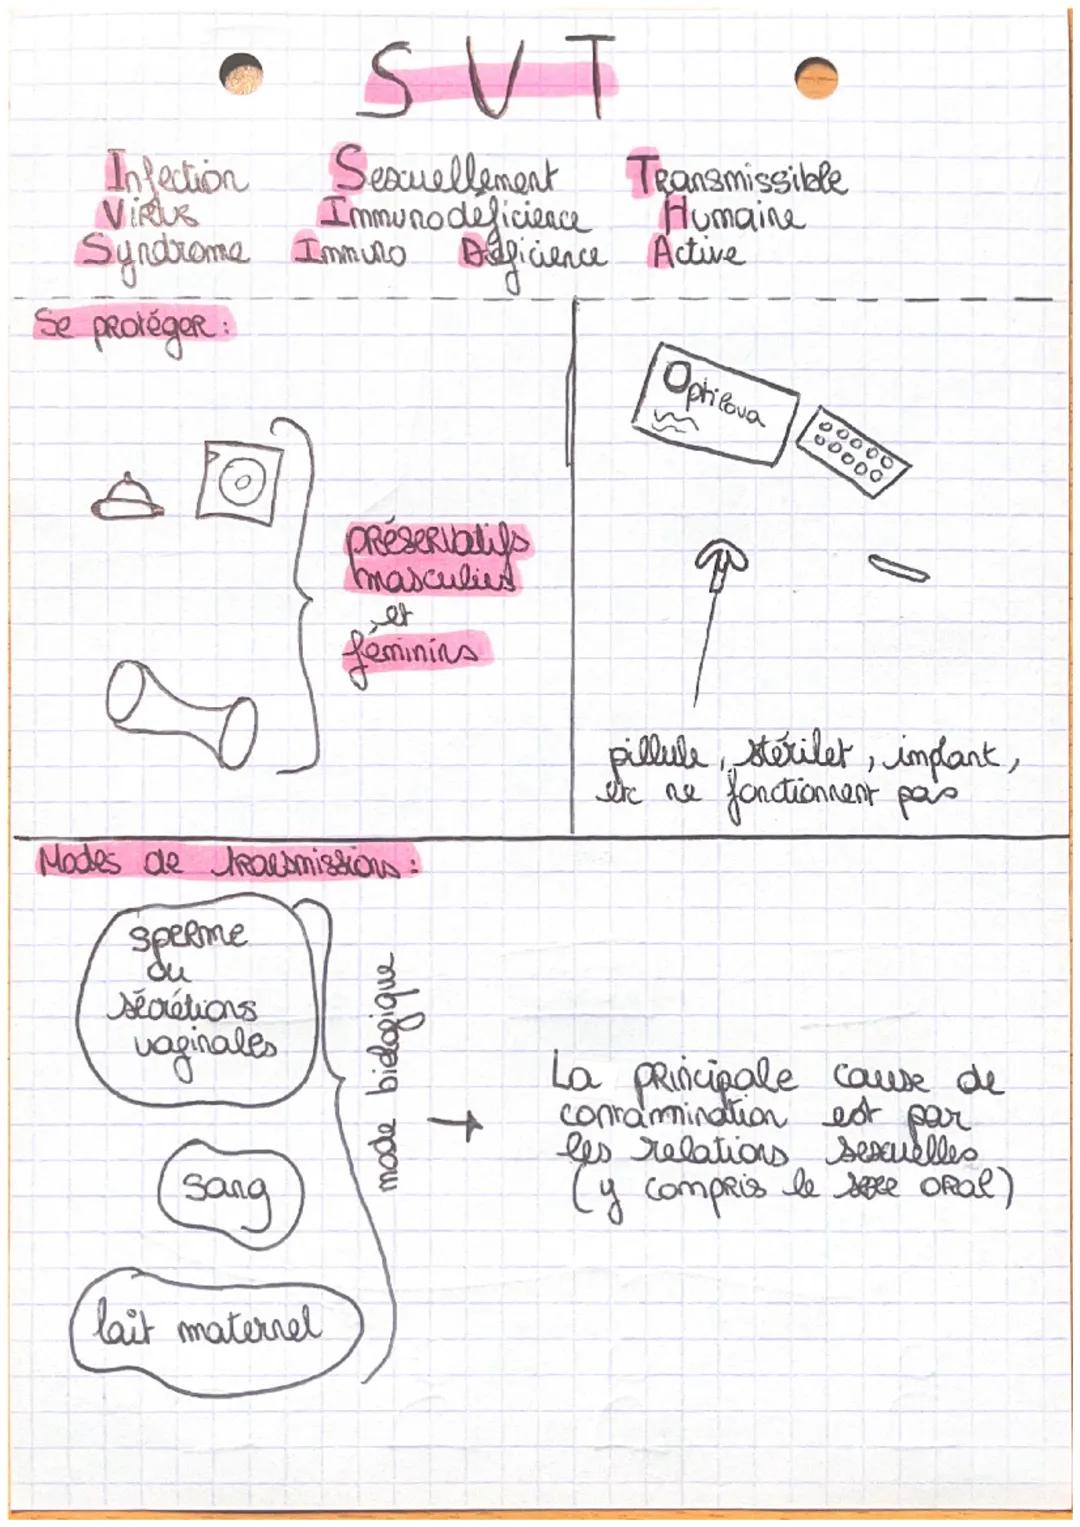 SVT
Infection Sexuellement Transmissible
Virus Immunodéficience Humaine
Syndrome Immuno Déficience Active
Se protéger :
Optilova
préservatifs
masculins
et
féminins
pillule, stérilet, implant,
etc ne fonctionnent pas
Modes de transmissions :
sperme
ou
sécrétions
vaginales
sang
lait maternel
mode biologique
→
La principale cause de
contamination est par
les relations sexuelles
(y compris le sexe oral)